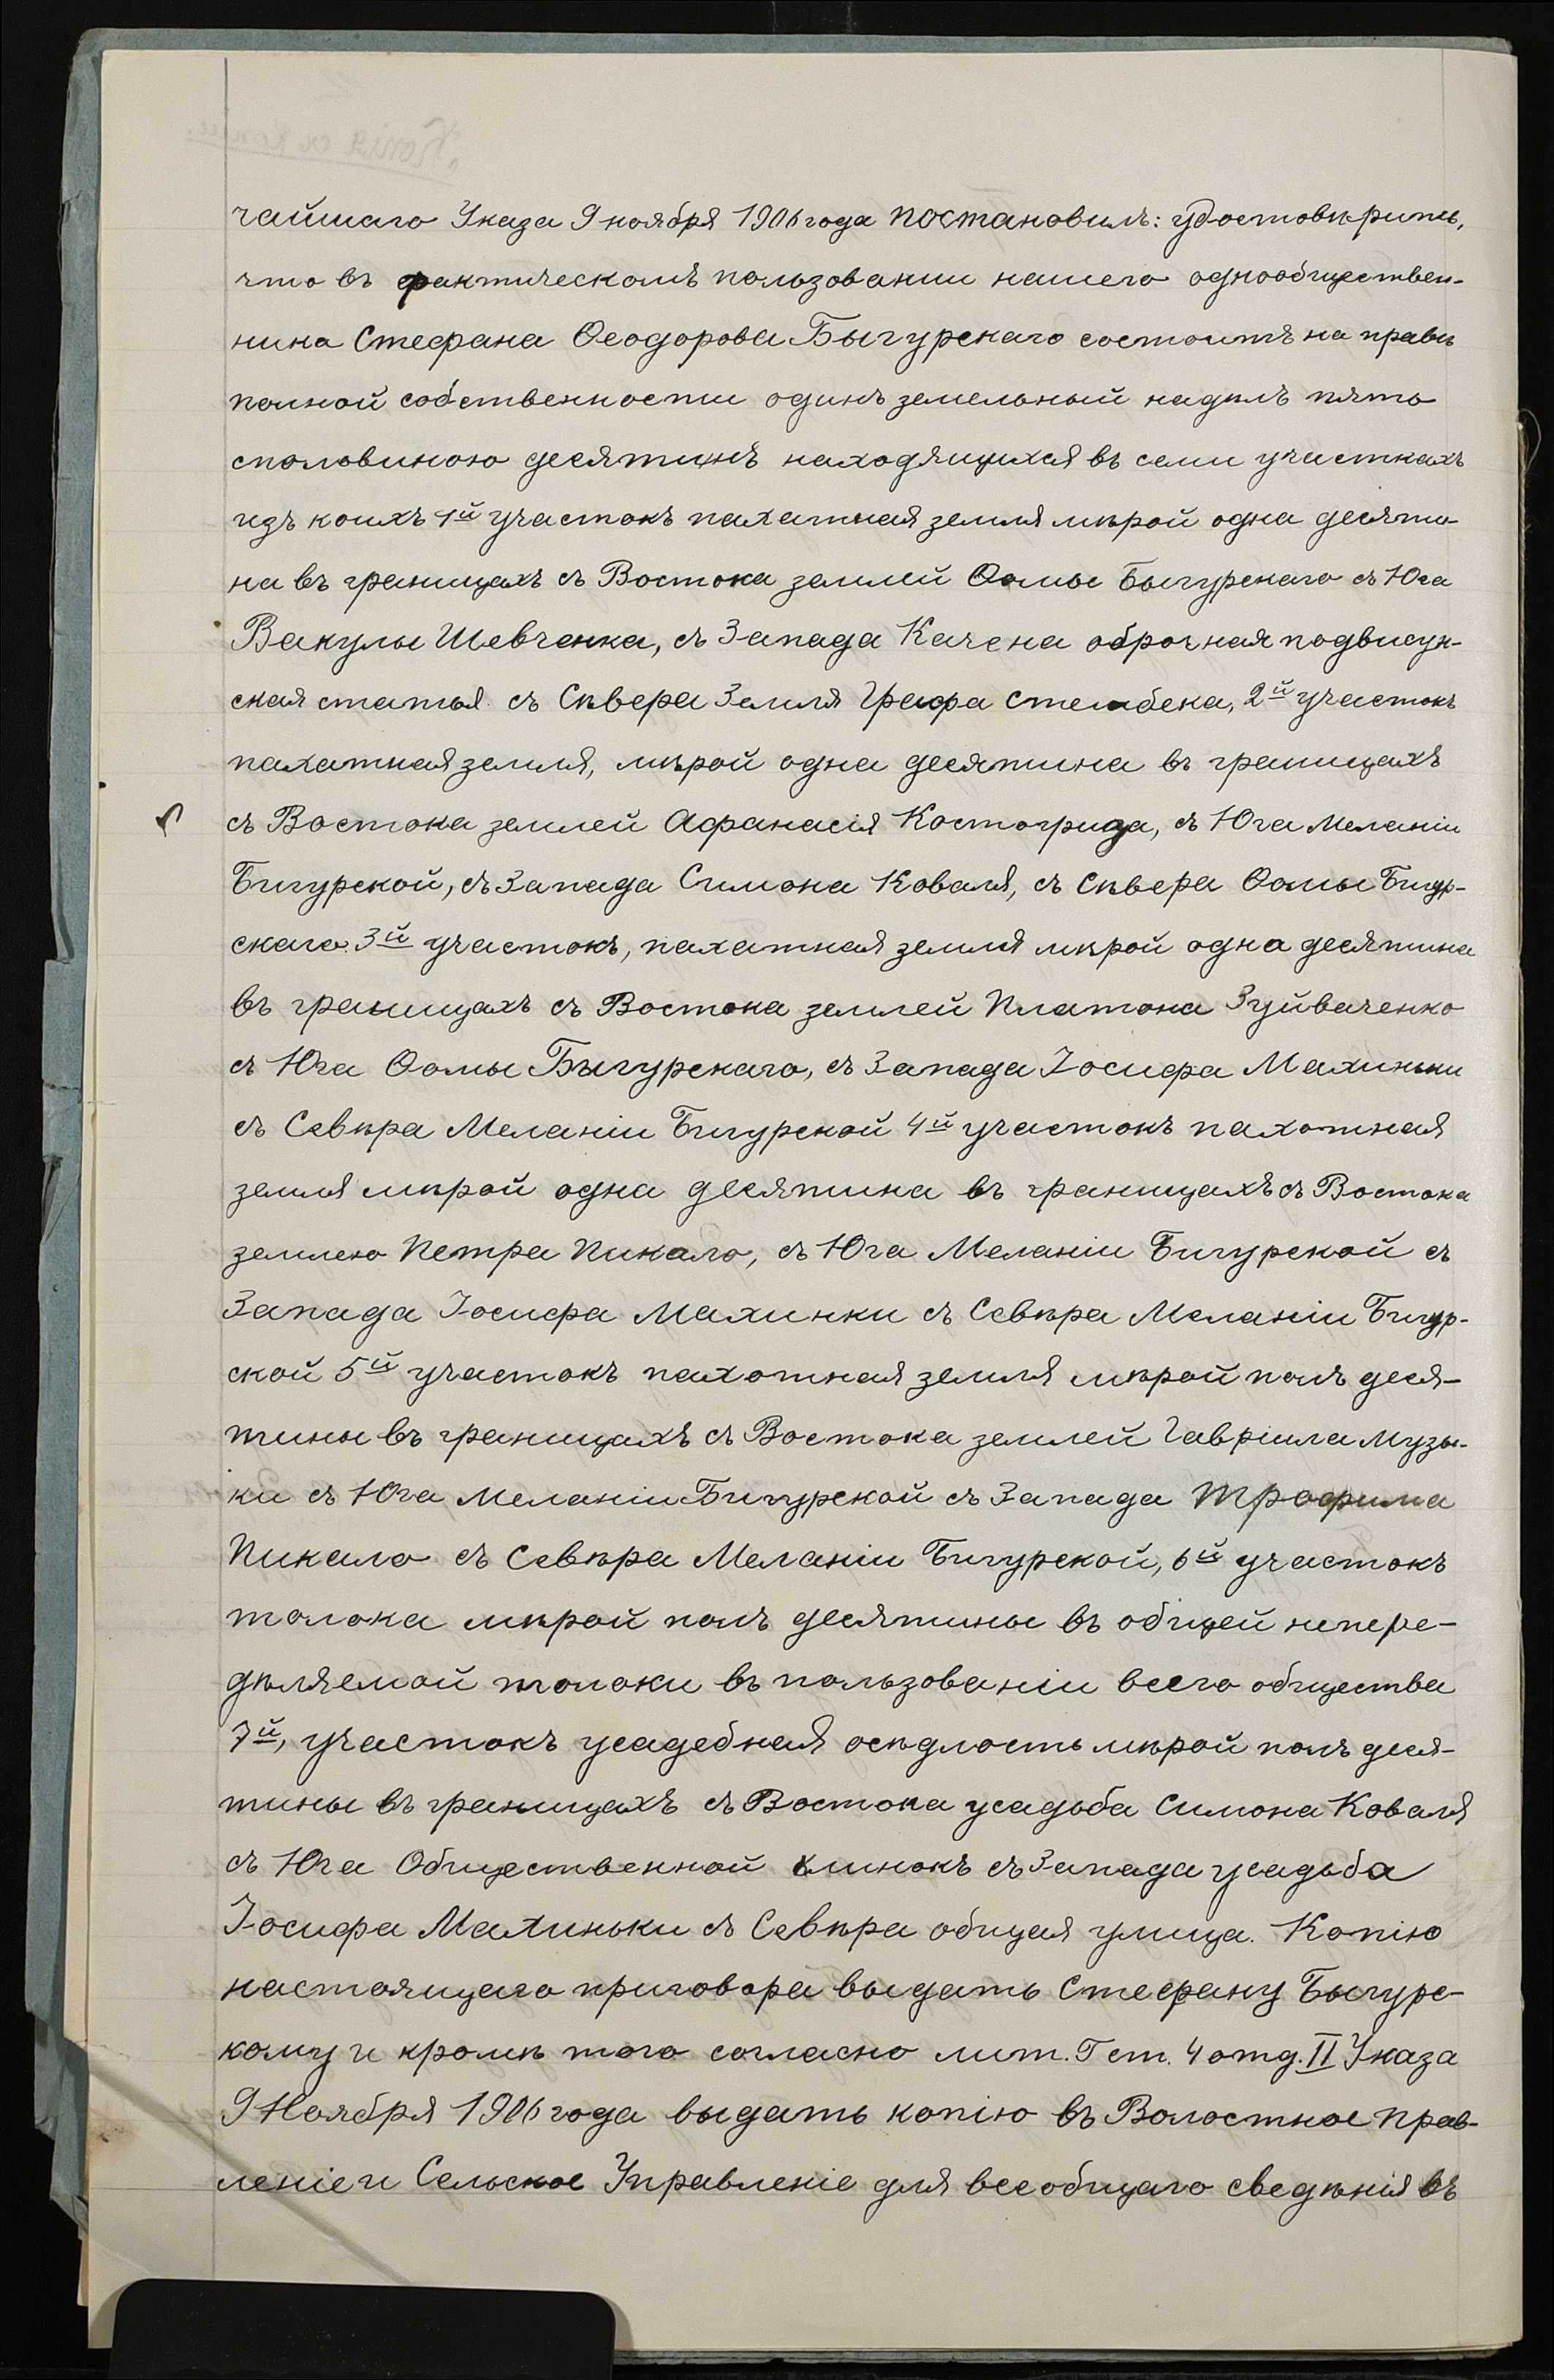 чайшаго Указа 9 ноября 1906 года постановилъ: удостовѣрить,
что въ фактическомъ пользовании нашего однообществен-
ника Стефана Ѳеодорова Быгурскаго состоитъ на правѣ
полной собственности одинъ земельный надѣлъ пять
споловиною десятинъ находящихся въ семи участкахъ
изъ коихъ 1й участокъ пахатная земля мѣрой одна десяти-
на въ границахъ съ Востока землей Ѳомы Быгурскаго съ Юга
Вакулы Шевченка, съ Запада Качена оброчная подвисун-
ская статья съ Сѣвера Земля Графа Стембека, 2й участокъ
пахатная земля, мѣрой одна десятина въ границахъ
съ Востока землей Афанасія Костогриза, съ Юга Меланіи
Бигурской, съ Запада Симона Коваля, съ Сѣвера Ѳомы Бигур-
скаго 3й участокъ, пахатная земля мѣрой одна десятина
въ границахъ съ Востока землей Платона Зуйваченко
съ Юга Ѳомы Быгурскаго, съ Запада Іосифа Махиньки
съ Севѣра Меланіи Бигурской 4й участокъ пахотная
земля мѣрой одна десятина въ границахъ съ Востока
землею Петра Пикало, съ Юга Меланіи Бигурской съ
Запада Іосифа Махинки съ Севѣра Меланіи Бигур-
ской 5й участокъ пахотная земля мѣрой полъ деся-
тины въ границахъ съ Востока землей Гавріила Музы-
ки съ Юга Меланіи Бигурской съ Запада Трофима
Пикало съ Севѣра Меланіи Бигурской, 6й участокъ
толока мѣрой полъ десятины въ общей непере-
дѣляемой толоки въ пользованіи всего общества
7й, участокъ усадебная осѣдлость мѣрой полъ деся-
тины въ границахъ съ Востока усадьба Симона Коваля
съ Юга Общественной клинокъ съ Запада усадьба
Іосифа Махиньки съ Севѣра общая улица. Копію
настоящаго приговора выдать Стефану Быгурс-
кому и кромѣ того согласно лит. Г ст. 4 отд. II Указа
9 Ноября 1906 года выдать копію въ Волостное прав-
леніе и Сельское Управленіе для всеобщаго сведѣнія въ